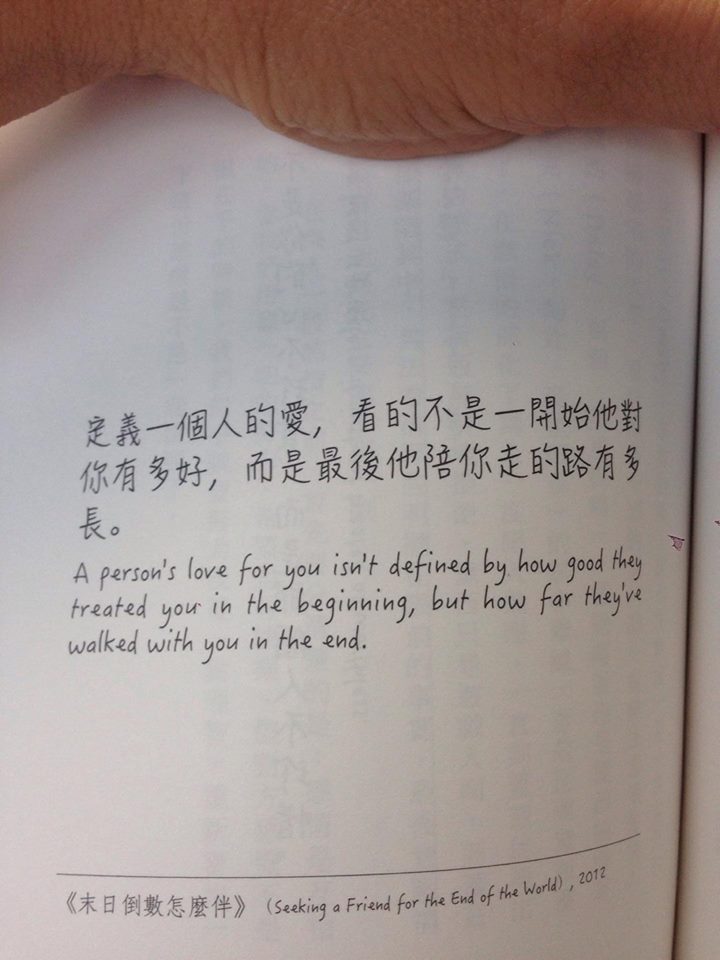 定義一個人的愛，看的不是一開始他對
你有多好，而是最後他陪你走的路有多
長。
A person's love for you isn't defined by how good they
treated you in the beginning, but how far they've
walked with you in the end.
《末日倒數怎麼伴》（Seeking a Friend for the End of the World）, 2012